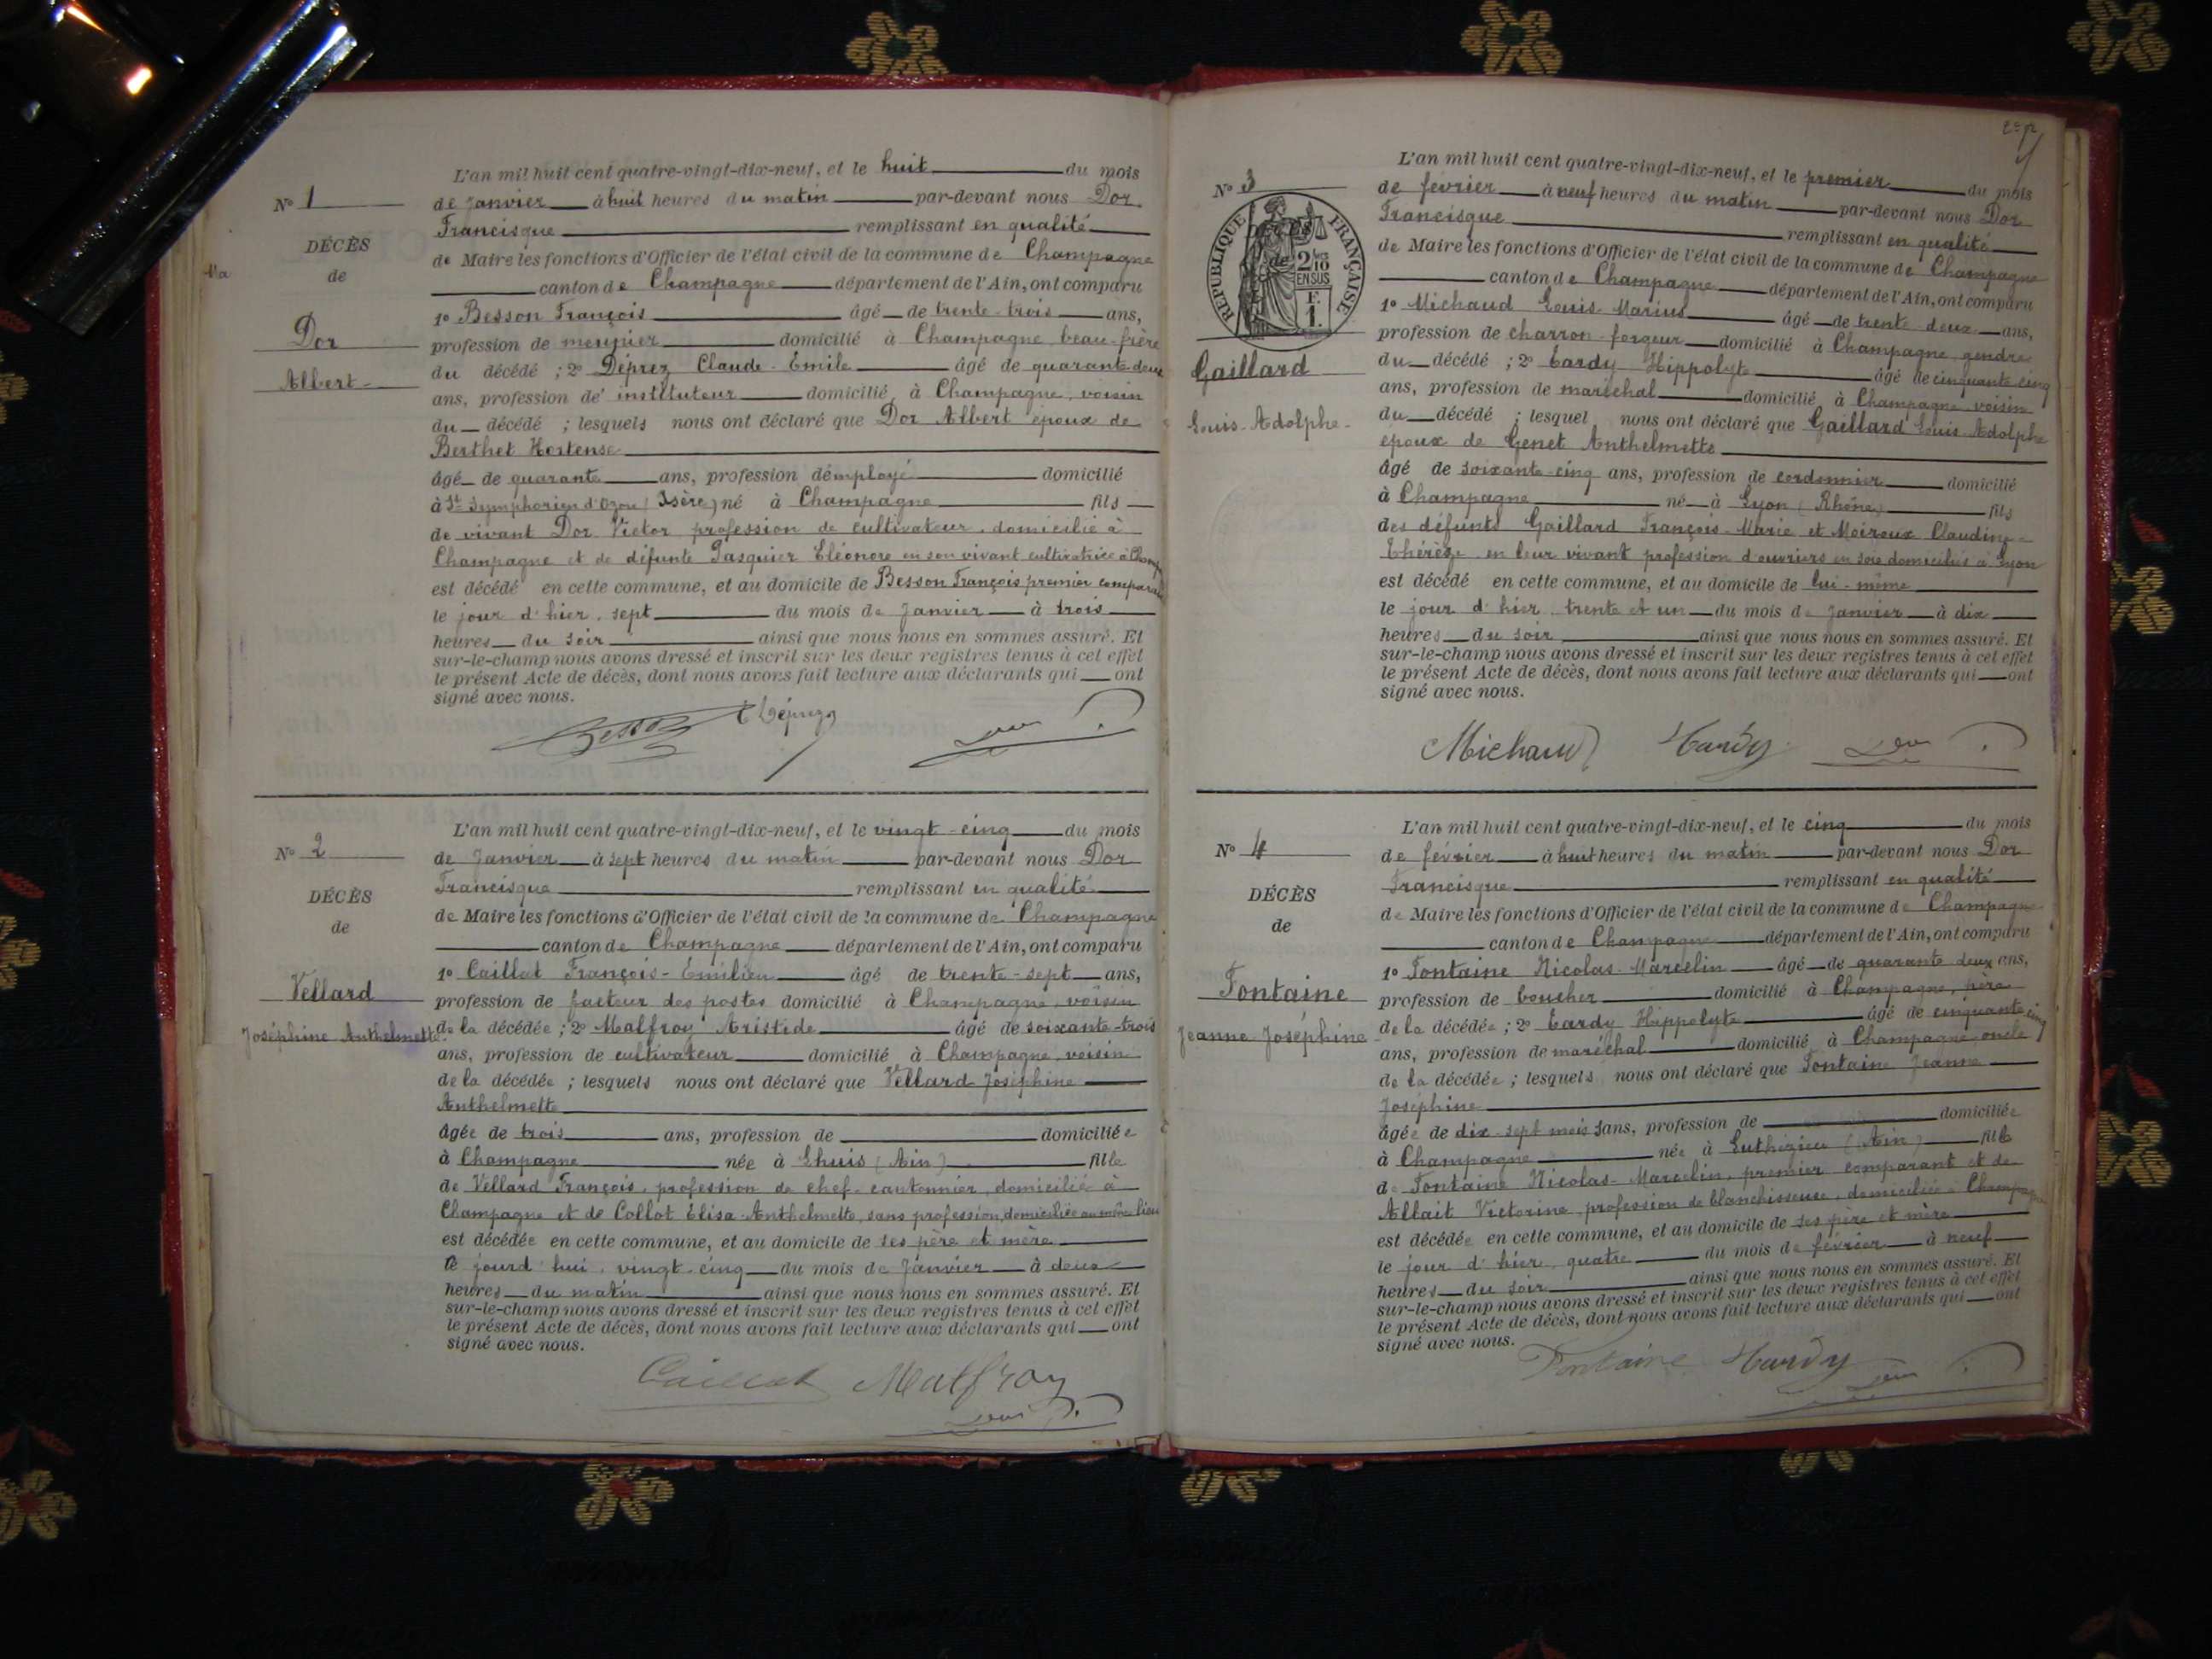 L'an mil huit cent quatre-vingt-dix-neuf, et le huit du mois
Nº 1
de janvier à huit heures du matin par-devant nous Dor
Francisque remplissant en qualité
DÉCÈS
de Maire les fonctions d'Officier de l'état civil de la commune de Champagne
de
canton de Champagne département de l'Ain, ont comparu
1º Besson François âgé de trente-trois ans,
Dor
profession de meunier domicilié à Champagne beau-frère
Albert
du décédé ; 2º Déprez Claude-Emile âgé de quarante-deux
ans, profession d'instituteur domicilié à Champagne, voisin
du décédé ; lesquels nous ont déclaré que Dor Albert époux de
Berthet Hortense
âgé de quarante ans, profession d'employé domicilié
à St Symphorien d'Ozon (Isère) né à Champagne fils
de vivant Dor Victor profession de cultivateur domicilié à
Champagne et de défunte Pasquier Eléonore en son vivant cultivatrice à Champ
est décédé en cette commune, et au domicile de Besson François premier comparant
le jour d'hier, sept du mois de janvier à trois
heures du soir ainsi que nous nous en sommes assuré. Et
sur-le-champ nous avons dressé et inscrit sur les deux registres tenus à cet effet
le présent Acte de décès, dont nous avons fait lecture aux déclarants qui ont
signé avec nous.
Besson C Déprez Dor
L'an mil huit cent quatre-vingt-dix-neuf, et le vingt-cinq du mois
Nº 2
de janvier à sept heures du matin par-devant nous Dor
Francisque remplissant en qualité
DÉCÈS
de Maire les fonctions d'Officier de l'état civil de la commune de Champagne
de
canton de Champagne département de l'Ain, ont comparu
1º Caillat François-Émilien âgé de trente-sept ans,
Vellard
profession de facteur des postes domicilié à Champagne, voisin
Joséphine Anthelmette
de la décédée ; 2º Malfroy Aristide âgé de soixante-trois
ans, profession de cultivateur domicilié à Champagne, voisin
de la décédée ; lesquels nous ont déclaré que Vellard Joséphine
Anthelmette
âgée de trois ans, profession de domiciliée
à Champagne née à Lhuis (Ain) fille
de Vellard François, profession de chef-cantonnier, domicilié à
Champagne et de Collot Élisa-Anthelmette, sans profession, domiciliée au même lieu
est décédée en cette commune, et au domicile de ses père et mère
ce jourd'hui, vingt-cinq du mois de janvier à deux
heures du matin ainsi que nous nous en sommes assuré. Et
sur-le-champ nous avons dressé et inscrit sur les deux registres tenus à cet effet
le présent Acte de décès, dont nous avons fait lecture aux déclarants qui ont
signé avec nous.
Caillat Malfroy
Dor
L'an mil huit cent quatre-vingt-dix-neuf, et le premier du mois
Nº 3
de février à neuf heures du matin par-devant nous Dor
Francisque remplissant en qualité
RÉPUBLIQUE FRANÇAISE
2/10
EN SUS
F.
1.
de Maire les fonctions d'Officier de l'état civil de la commune de Champagne
canton de Champagne département de l'Ain, ont comparu
1º Michaud Louis-Marius âgé de trente-deux ans,
profession de charron-forgeur domicilié à Champagne, gendre
Gaillard
du décédé ; 2º Tardy Hippolyte âgé de cinquante-cinq
ans, profession de maréchal domicilié à Champagne, voisin
Louis-Adolphe
du décédé ; lesquel nous ont déclaré que Gaillard Louis-Adolphe
époux de Genet Anthelmette
âgé de soixante-cinq ans, profession de cordonnier domicilié
à Champagne né à Lyon (Rhône) fils
des défunts Gaillard François-Marie et Moiroux Claudine-
Thérèse en leur vivant profession d'ouvriers en soie domiciliés à Lyon
est décédé en cette commune, et au domicile de lui-même
le jour d'hier, trente et un du mois de janvier à dix
heures du soir ainsi que nous nous en sommes assuré. Et
sur-le-champ nous avons dressé et inscrit sur les deux registres tenus à cet effet
le présent Acte de décès, dont nous avons fait lecture aux déclarants qui ont
signé avec nous.
Michaud Tardy Dor
L'an mil huit cent quatre-vingt-dix-neuf, et le cinq du mois
Nº 4
de février à huit heures du matin par-devant nous Dor
Francisque remplissant en qualité
DÉCÈS
de Maire les fonctions d'Officier de l'état civil de la commune de Champagne
de
canton de Champagne département de l'Ain, ont comparu
1º Fontaine Nicolas-Marcelin âgé de quarante deux ans,
Fontaine
profession de boucher domicilié à Champagne, père
Jeanne-Joséphine
de la décédée ; 2º Tardy Hippolyte âgé de cinquante-cinq
ans, profession de maréchal domicilié à Champagne oncle
de la décédée ; lesquels nous ont déclaré que Fontaine Jeanne
Joséphine
âgée de dix-sept mois sans, profession de domiciliée
à Champagne née à Luthézieu (Ain) fille
de Fontaine Nicolas-Marcelin, premier comparant et de
Allait Victorine profession de blanchisseuse, domiciliée à Champagne
est décédée en cette commune, et au domicile de ses père et mère
le jour d'hier, quatre du mois de février à neuf
heures du soir ainsi que nous nous en sommes assuré. Et
sur-le-champ nous avons dressé et inscrit sur les deux registres tenus à cet effet
le présent Acte de décès, dont nous avons fait lecture aux déclarants qui ont
signé avec nous.
Fontaine Tardy
Dor